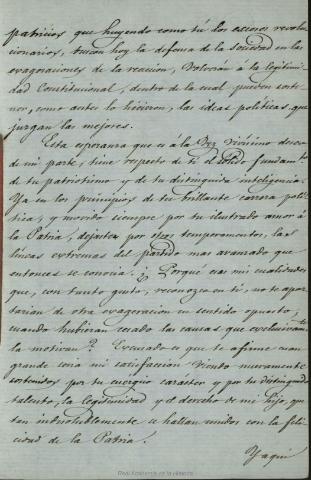 patricios que huyendo como tú los escesos revolu-
cionarios, buscan hoy la defensa de la Sociedad en las
exageraciones de la reacción, volverán á la legitimi-
dad Constitucional, dentro de la cual pueden soste-
ner, como antes lo hicieron, las ideas políticas, que
juzgan las mejores.
Esta esperanza que es á la vez vivísimo deseo
de mi parte, tiene respecto de ti el sólido fundamto
de tu patriotismo y de tu distinguida inteligencia.
Ya en los principios de tu brillante carrera polí-
tica, y movido siempre por tu ilustrado amor á
la Patria, dejaste por otros temperamentos, las
líneas extremas del partido mas avanzado que
entonces se conocía. ¿Porqué esas mis cualidades
que, con tanto gusto, reconozco en ti, no te apar-
tarían de otra exageracion en sentido opuesto,
cuando hubieran cesado las causas que exclusivamte
la motivan? Escusado es que te afirme cuan
grande sería mi satisfacción viendo nuevamente
sostenidos por tu enérgico carácter y por tu distinguido
talento, la legitimidad y el derecho de mi hijo, que
tan indisolublemente se hallan unidos con la feli-
cidad de la Patria.
Y aquí
Real Academia de la Historia